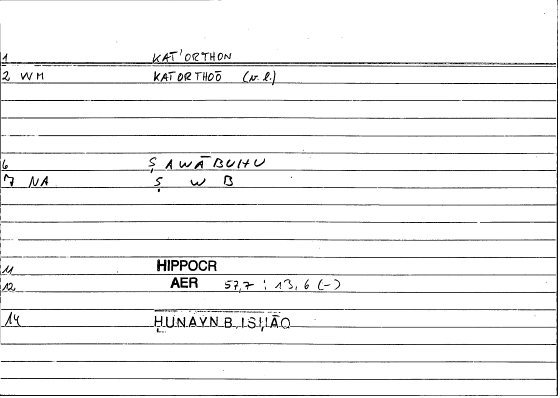 1 KAT'ORTHON
2 WM KATORTHOŌ (v.l.)
6 ṢAWĀBUHU
7 NA Ṣ W B
11 HIPPOCR
12 AER 57,7 : 13,6 (-)
14 ḤUNAYN B. ISḤĀQ